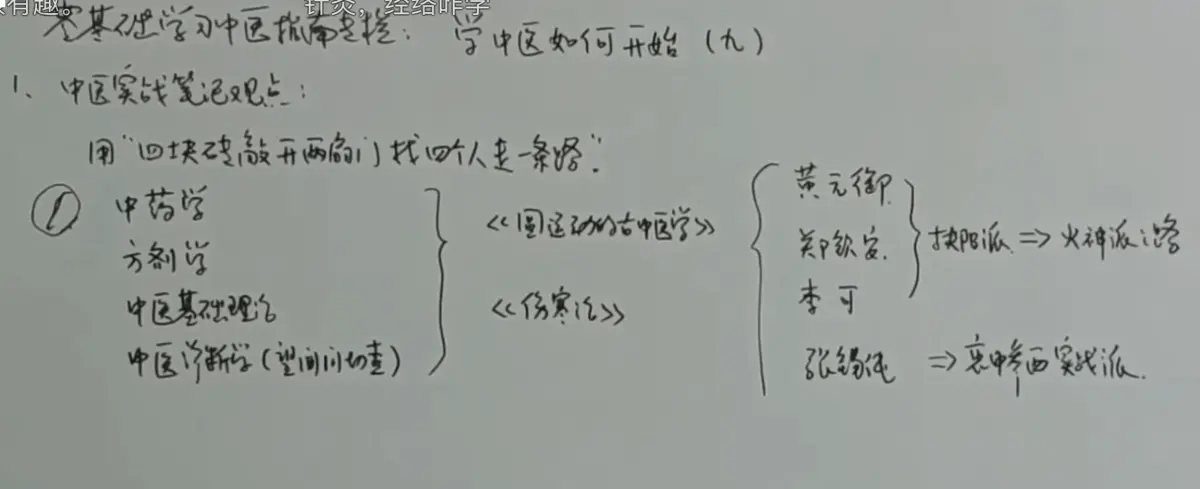 有趣。
针灸，经络咋学
零基础学习中医指南专栏：学中医如何开始（九）
1、中医实战笔记观点：
用“四块砖敲开两扇门找四个人走一条路”.
① 中药学
方剂学
中医基础理论
中医诊断学(望闻问切查)
<<圆运动的古中医学>>
<<伤寒论>>
黄元御
郑钦安
李可
扶阳派 => 火神派之路
张锡纯 => 衷中参西实战派.